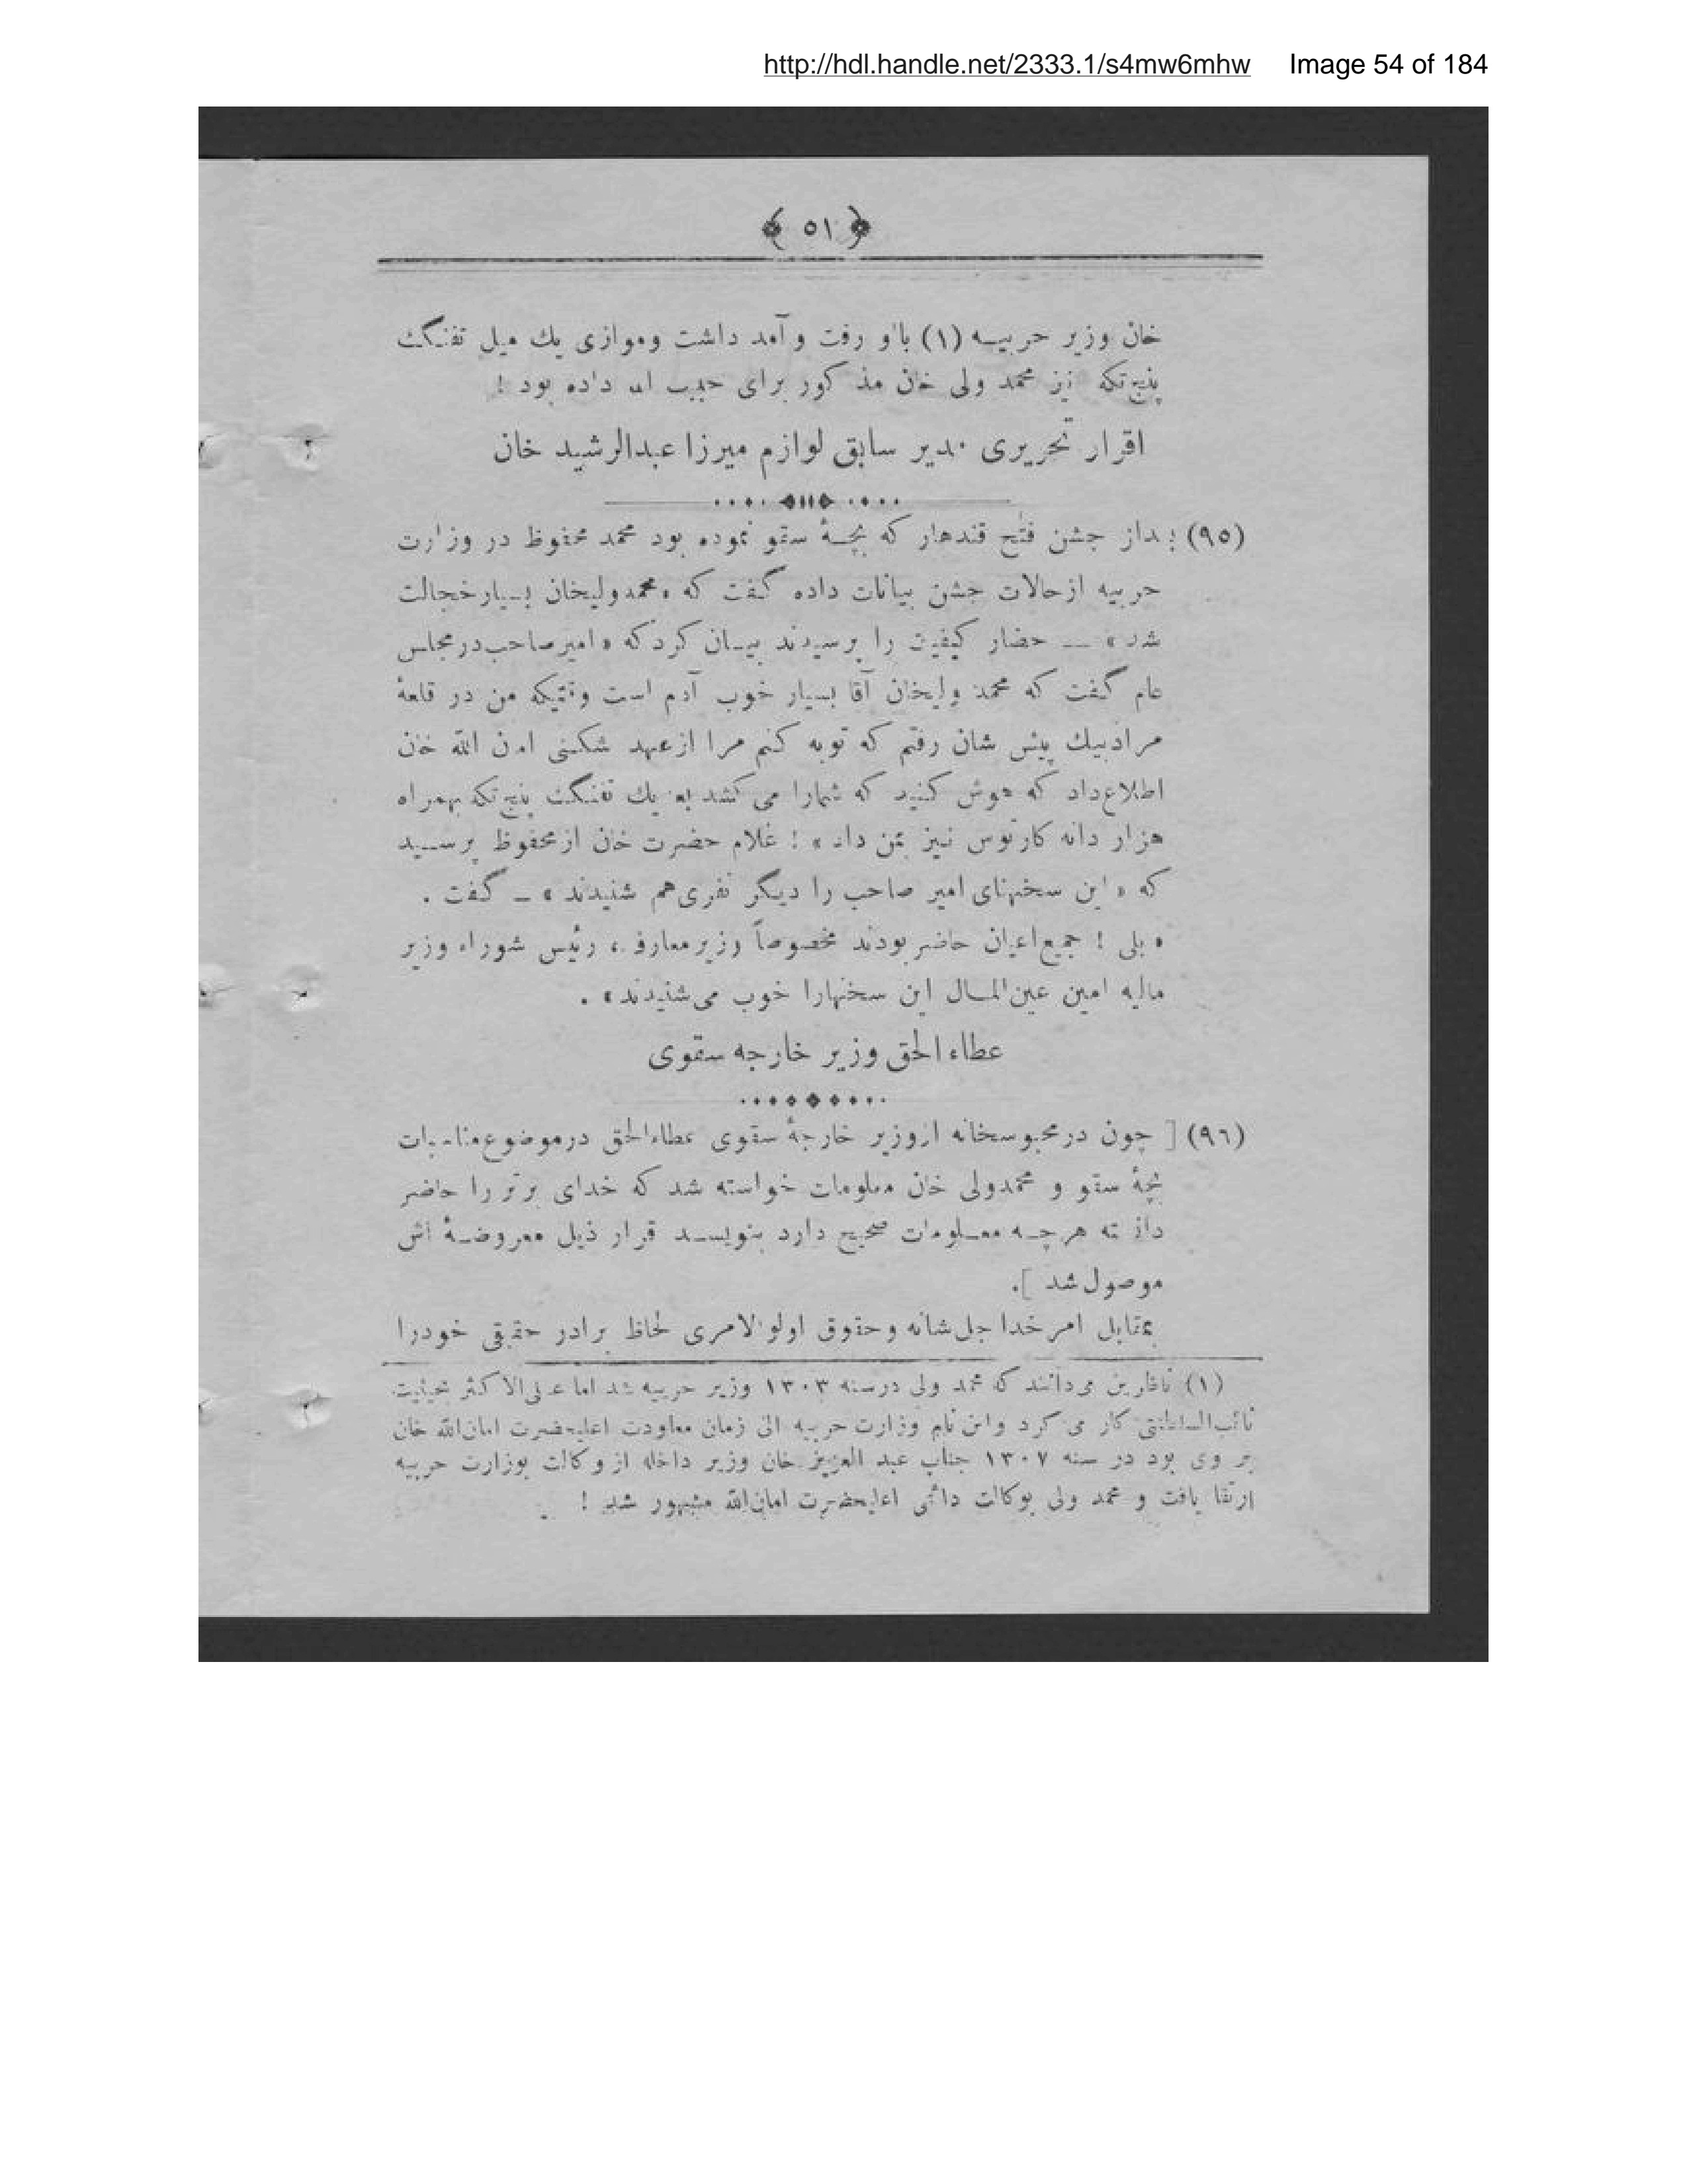 http://hdl.handle.net/2333.1/s4mw6mhw Image 54 of 184
﴿ ٥١ ﴾
خان وزیر حربیه (١) با او رفت و آمد داشت وموازی یك میل تفنگ
پنج تکه نیز محمد ولی خان مذ کور برای حبیب اله داده بود !
اقرار تحریری مدیر سابق لوازم میرزا عبدالرشید خان
(٩٥) بعداز جشن فتح قندهار که بچۀ سقو نموده بود محمد محفوظ در وزارت
حربیه ازحالات جشن بیانات داده گفت که «محمدولیخان بسیارخجالت
شد» — حضار کیفیت را پرسیدند بیان کرد که «امیرصاحب درمجلس
عام گفت که محمد ولیخان آقا بسیار خوب آدم است وقتیکه من در قلعۀ
مرادبیك پیش شان رفتم که توبه کنم مرا ازعهد شکنی امان الله خان
اطلاع داد که هوش کنید که شمارا می کشد یك تفنگ پنج تکه بهمراه
هزار دانه کارتوس نیز بمن داد» ! غلام حضرت خان ازمحفوظ پرسید
که «این سخنهای امیر صاحب را دیگر نفری هم شنیدند» – گفت .
«بلی ! جمیع اعیان حاضر بودند مخصوصاً وزیر معارف ، رئیس شوراء وزیر
مالیه امین عین المال این سخنهارا خوب می شنیدند» .
عطاء الحق وزیر خارجه سقوی
(٩٦) [ چون درمحبوسخانه ازوزیر خارجۀ سقوی عطاءالحق درموضوع مناسبات
بچۀ سقو و محمدولی خان معلومات خواسته شد که خدای برتر را حاضر
دانسته هر چه معلومات صحیح دارد بنویسد قرار ذیل معروضۀ اش
موصول شد ].
بمقابل امر خدا جل شانه وحقوق اولوالامری لحاظ برادر حقیقی خودرا
(١) ناظرین می دانند که محمد ولی درسنه ١٣٠٣ وزیر حربیه شد اما علی الاکثر بحیثیت
نائب السلطنتی کار می کرد واین نام وزارت حربیه الی زمان معاودت اعلیحضرت امان الله خان
بر وی بود در سنه ١٣٠٧ جناب عبد العزیز خان وزیر داخله از وکالت بوزارت حربیه
ارتقا یافت و محمد ولی بوکالت دائمی اعلیحضرت امان الله مشهور شد !